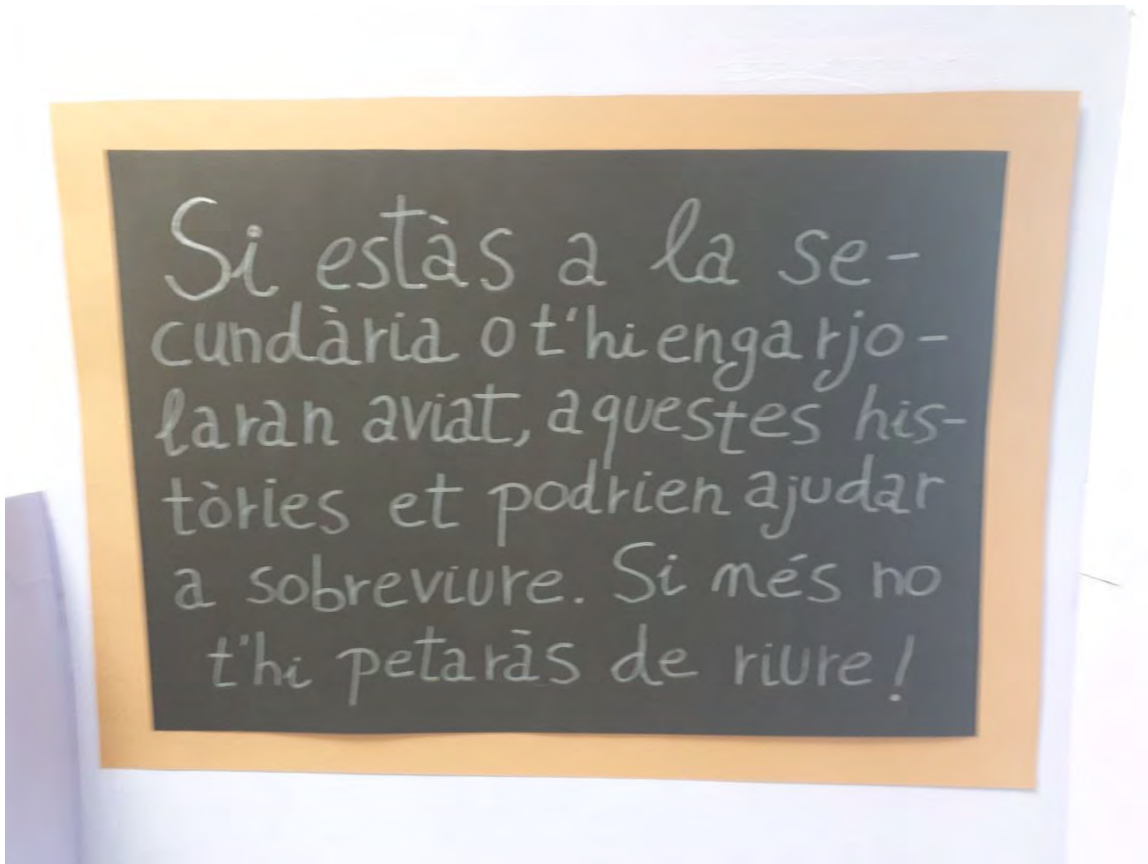 Si estàs a la se-
cundària o t'hi engarjo-
laran aviat, aquestes his-
tòries et podrien ajudar
a sobreviure. Si més no
t'hi petaràs de riure!